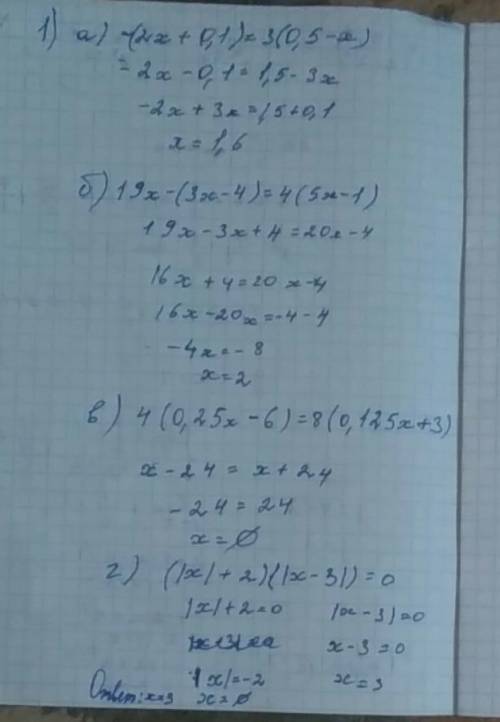 1) а) -(2x + 0,1) = 3(0,5 - x)
- 2x - 0,1 = 1,5 - 3x
-2x + 3x = 1,5 + 0,1
x = 1,6
б) 19x - (3x - 4) = 4(5x - 1)
19x - 3x + 4 = 20x - 4
16x + 4 = 20x - 4
16x - 20x = -4 - 4
-4x = -8
x = 2
в) 4(0,25x - 6) = 8(0,125x + 3)
x - 24 = x + 24
-24 = 24
x = ∅
г) (|x| + 2)(|x - 3|) = 0
|x| + 2 = 0 |x - 3| = 0
x - 3 = 0
|x| = -2 x = 3
Ответ: x=3 x = ∅